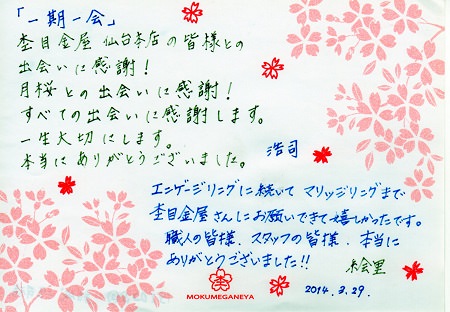 「一期一会」
杢目金屋 仙台本店の皆様との
出会いに感謝！
月桜との出会いに感謝！
すべての出会いに感謝します。
一生大切にします。
本当にありがとうございました。
浩司
エンゲージリングに続いて マリッジリングまで
杢目金屋さんにお願いできて嬉しかったです。
職人の皆様、スタッフの皆様、本当に
ありがとうございました!!
絵里
MOKUMEGANEYA
2014.3.29.